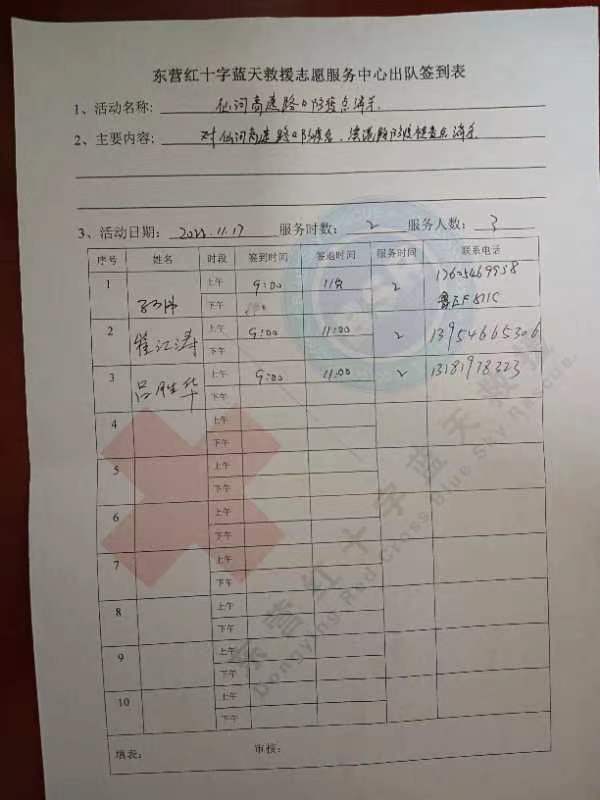 东营红十字蓝天救援志愿服务中心出队签到表
1、活动名称: 仙河高速路口防疫点消杀
2、主要内容: 对仙河高速路口防疫点、 防疫检查点消杀
3、活动日期: 2022.11.17 服务时数: 2 服务人数: 3
序号 姓名 时段 签到时间 签退时间 服务时间 联系电话
1 上午 9:00 2
下午
2 崔江涛 上午 9:00 11:00 2 13954665306
下午
3 吕胜华 上午 9:00 11:00 2 13181978323
下午
4 上午
下午
5 上午
下午
6 上午
下午
7 上午
下午
8 上午
下午
9 上午
下午
10 上午
下午
填表: 审核:
东营红十字蓝天救援
Dongying Red Cross Blue Sky Rescue